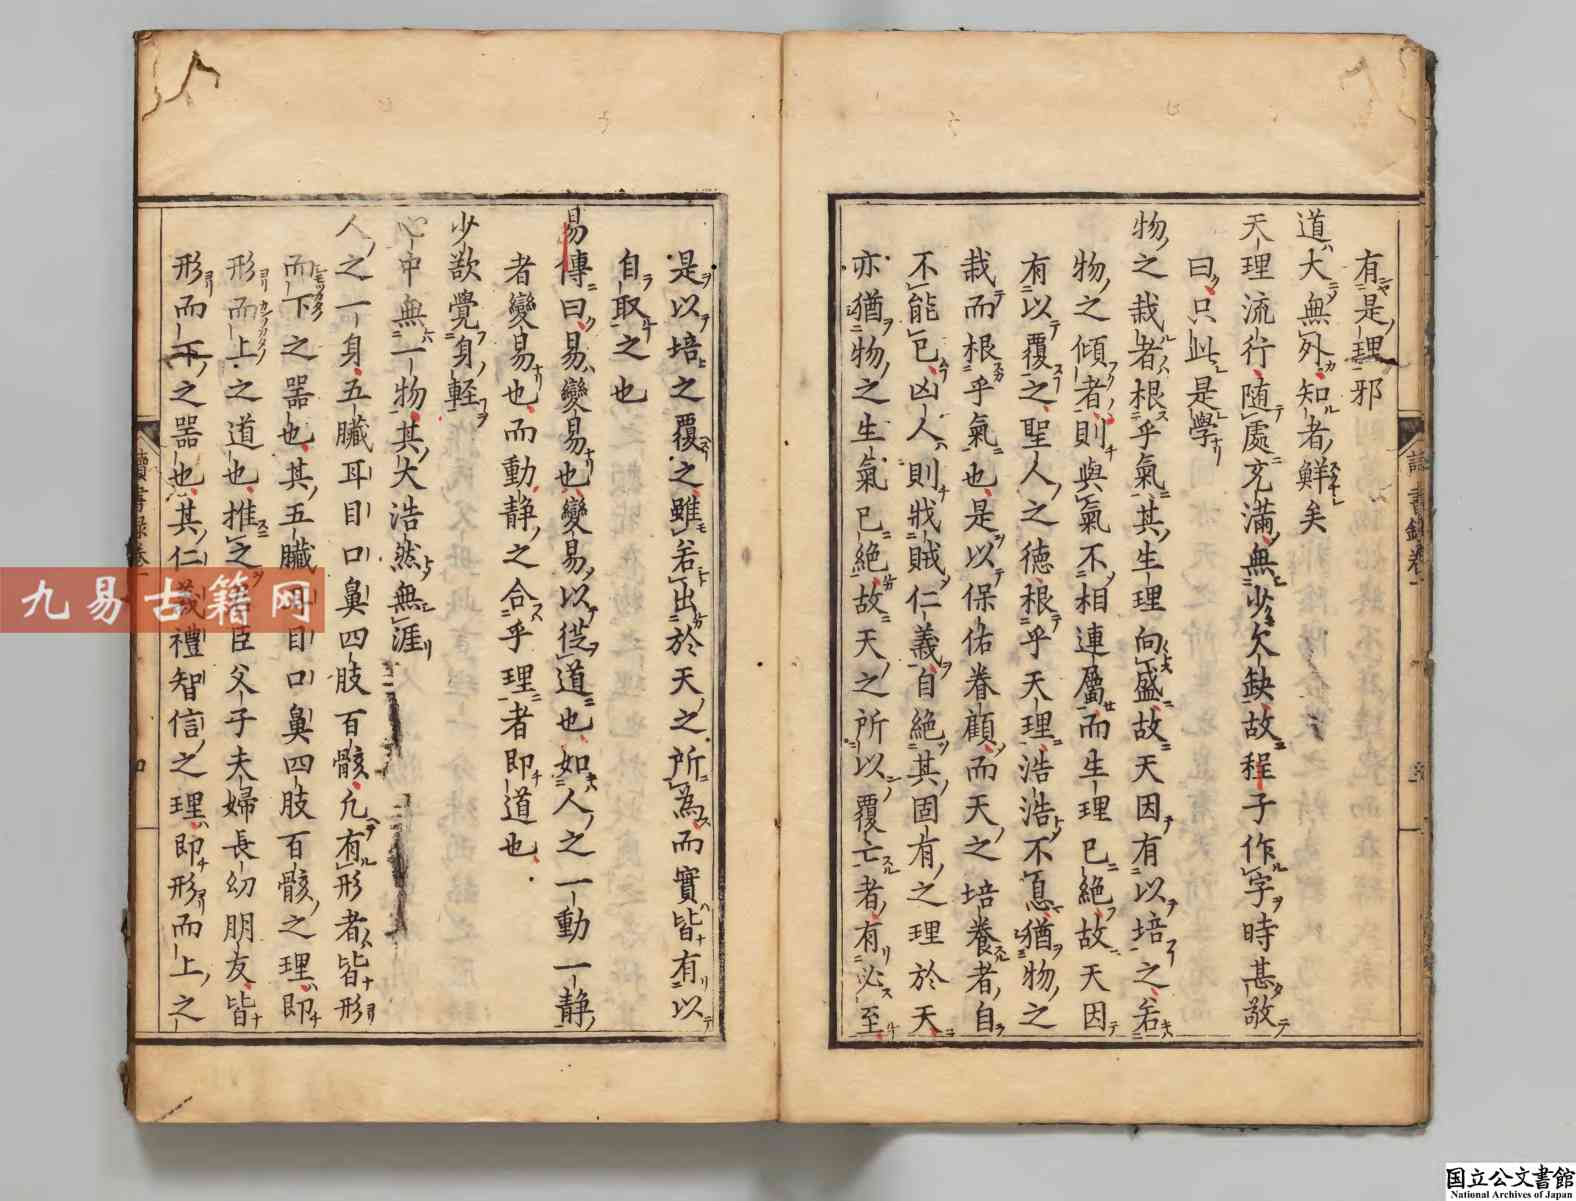 有是理邪
道大無外知者鮮矣
天理流行随處充滿無少欠缺故程子作字時甚敬
曰只此是學
物之栽者根乎氣其生理向盛故天因有以培之若
物之傾者則與氣不相連屬而生理已絕故天因
有以覆之聖人之德根乎天理浩浩不息猶物之
栽而根乎氣也是以保佑眷顧而天之培養者自
不能已凶人則戕賊仁義自絕其固有之理於天
亦猶物之生氣已絕故天之所以覆亡者有必至
是以培之覆之雖若出於天之所為而實皆有以
自取之也
易傳曰易變易也變易以從道也如人之一動一静
者變易也而動静之合乎理者即道也
少欲覺身輕
心中無一物其大浩然無涯
人之一身五臓耳目口鼻四肢百骸凢有形者皆形
而下之噐也其五臓耳目口鼻四肢百骸之理即
形而上之道也推之君臣父子夫婦長幼朋友皆
形而下之噐也其仁義禮智信之理即形而上之
讀書録卷一
九易古籍网
国立公文書館
National Archives of Japan